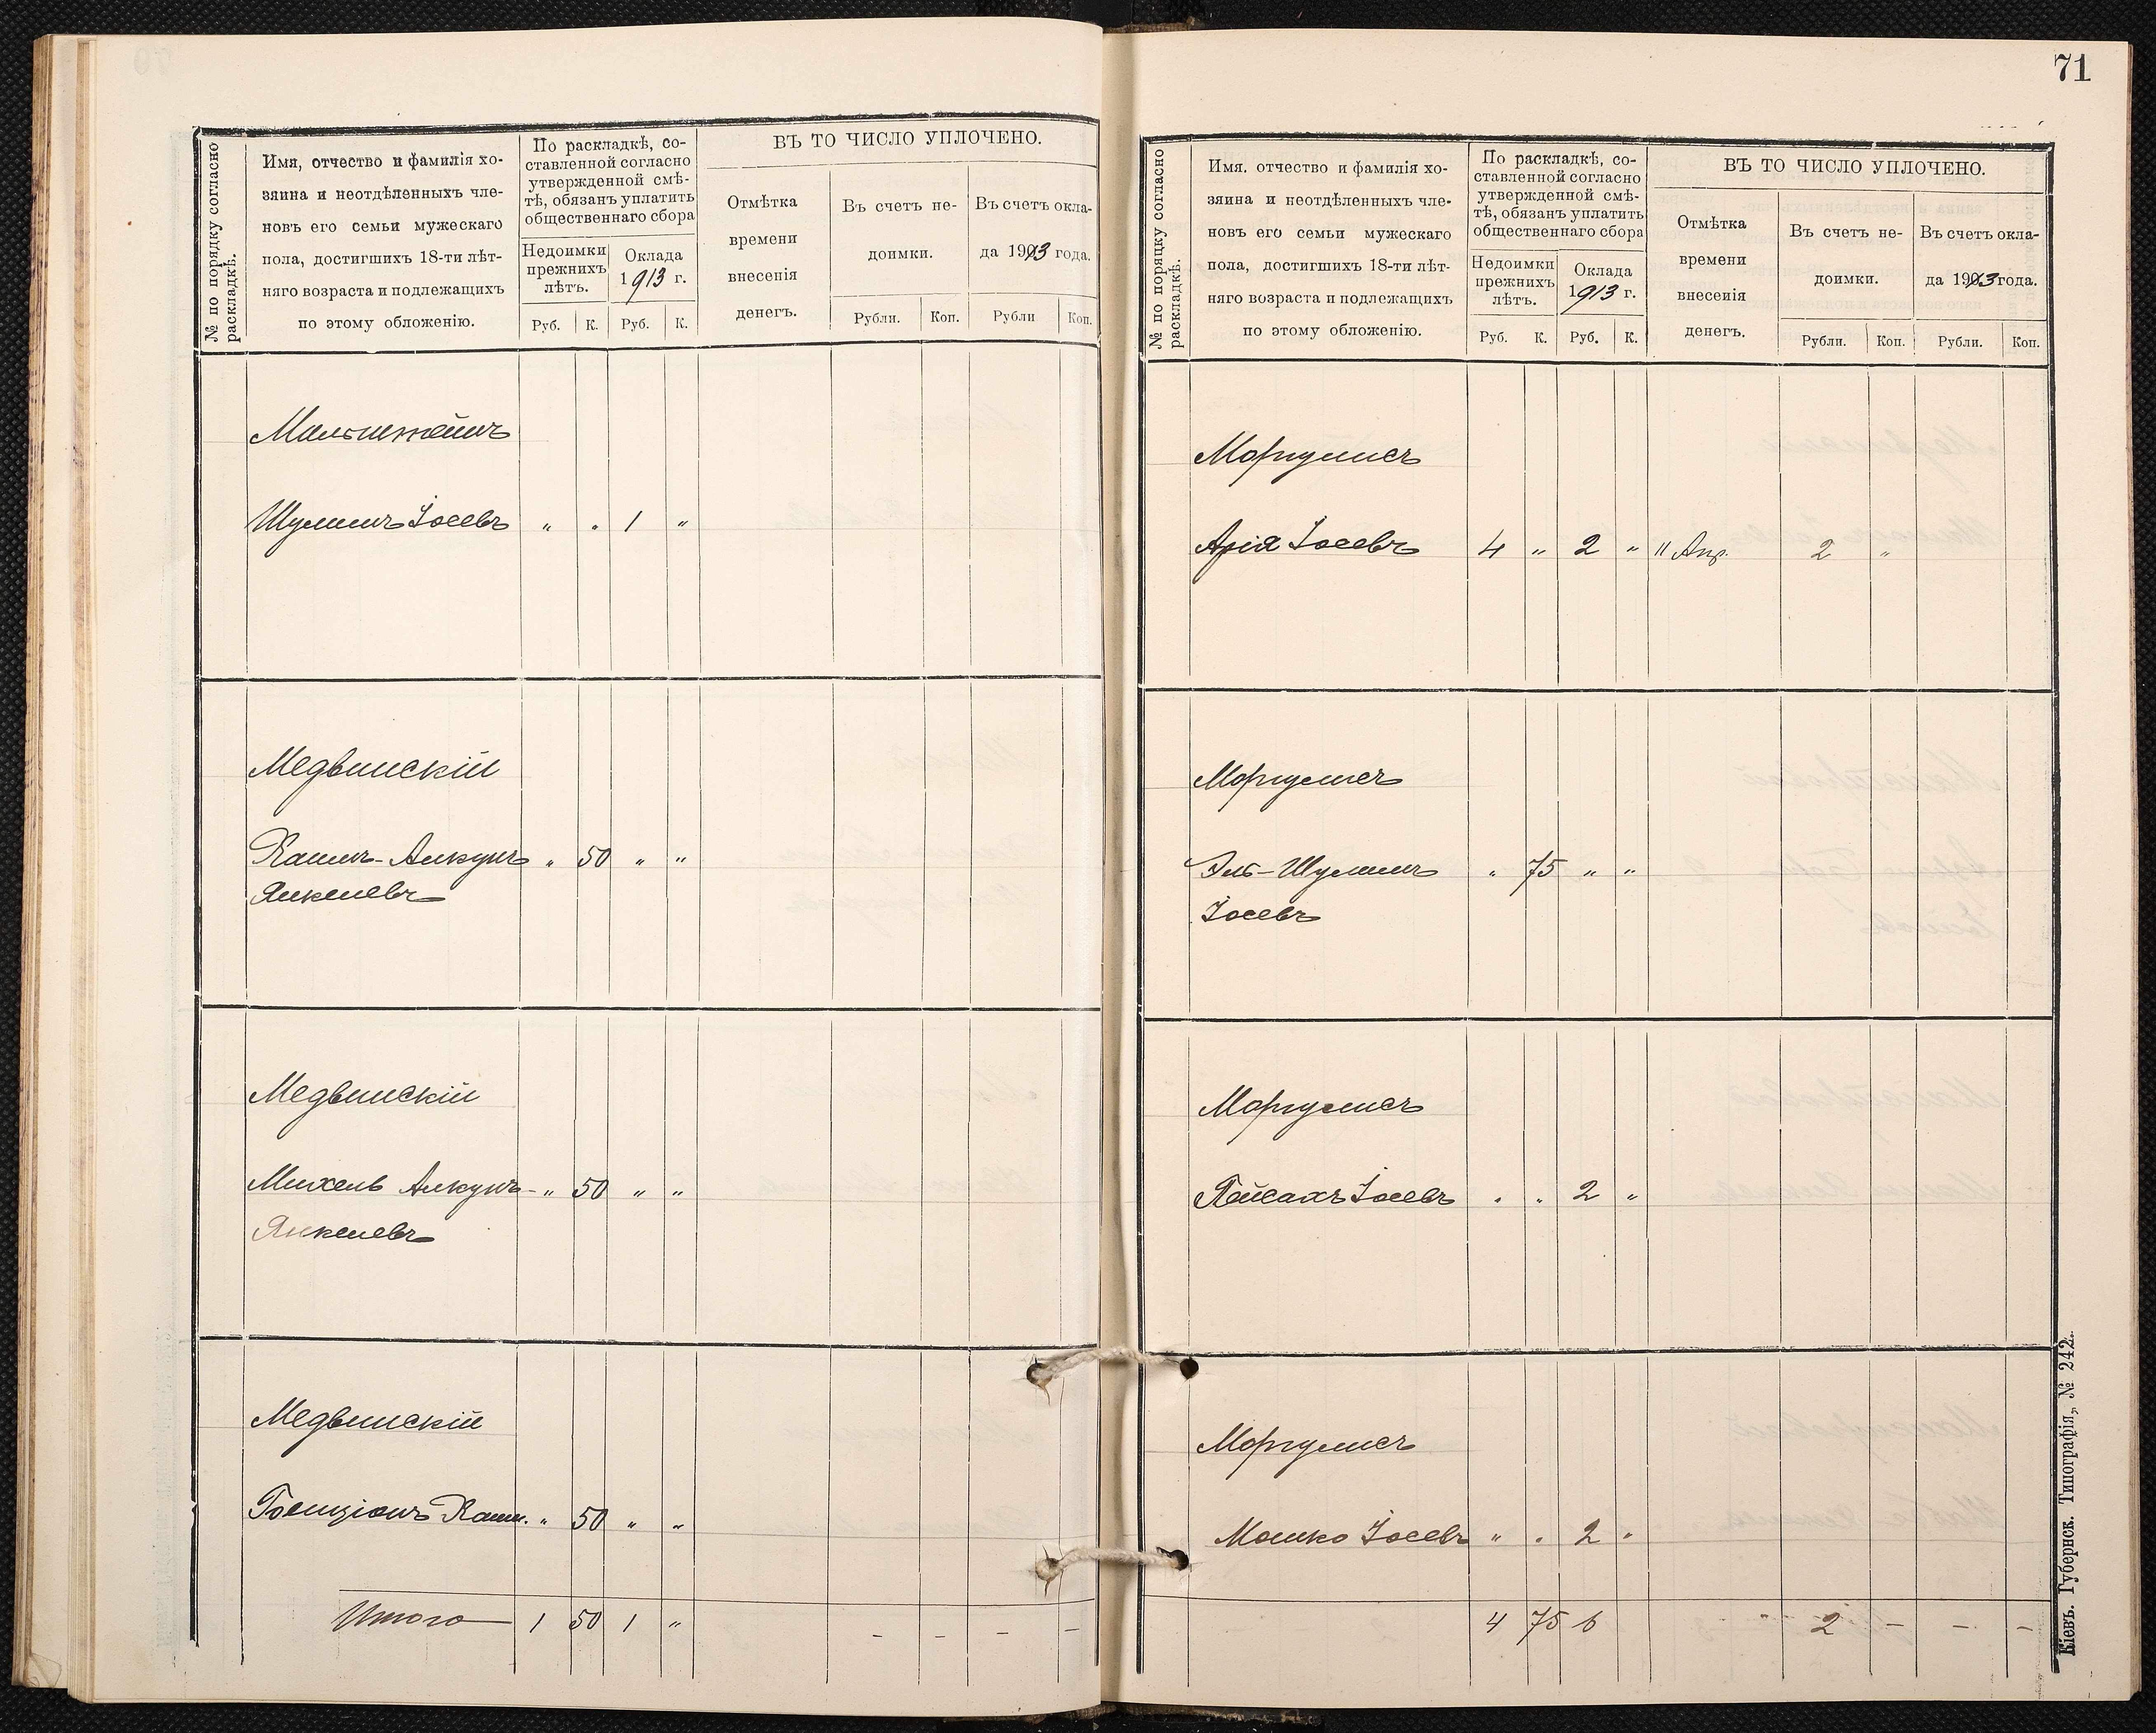 71
№ по порядку согласно
раскладкѣ.
Имя, отчество и фамилія хо-
зяина и неотдѣленныхъ чле-
новъ его семьи мужескаго
пола, достигшихъ 18-ти лѣт-
няго возраста и подлежащихъ
по этому обложенію.
По раскладкѣ, со-
ставленной согласно
утвержденной смѣ-
тѣ, обязанъ уплатить
общественнаго сбора
Недоимки
прежнихъ
лѣтъ.
Оклада
1913 г.
Руб. К. Руб. К.
ВЪ ТО ЧИСЛО УПЛОЧЕНО.
Отмѣтка
времени
внесенія
денегъ.
Въ счетъ не-
доимки.
Въ счетъ окла-
да 1913 года.
Рубли. Коп. Рубли Коп.
Шулимъ Іосевъ " " 1 "
Медвинскій
" 50 " "
Янкелевъ
Медвинскій
Михель " 50 " "
Янкелевъ
Медвинскій
" 50 " "
Итого 1 50 1 "
– – – –
№ по порядку согласно
раскладкѣ.
Имя. отчество и фамилія хо-
зяина и неотдѣленныхъ чле-
новъ его семьи мужескаго
пола, достигшихъ 18-ти лѣт-
няго возраста и подлежащихъ
по этому обложенію.
По раскладкѣ, со-
ставленной согласно
утвержденной смѣ-
тѣ, обязанъ уплатить
общественнаго сбора
Недоимки
прежнихъ
лѣтъ.
Оклада
1913 г.
Руб. К. Руб. К.
ВЪ ТО ЧИСЛО УПЛОЧЕНО.
Отмѣтка
времени
внесенія
денегъ.
Въ счетъ не-
доимки.
Въ счетъ окла-
да 1913 года.
Рубли. Коп. Рубли. Коп.
Моргулисъ
Арія Іосевъ 4 " 2 " 11 Апр. 2 "
Моргулисъ
Эль-Шулимъ " 75 " "
Іосевъ
Моргулисъ
Пейсахъ Іосевъ " " 2 "
Моргулисъ
Мошко Іосевъ " " 2 "
4 75 6 2 – – –
Кіевъ. Губернск. Типографія, № 242.